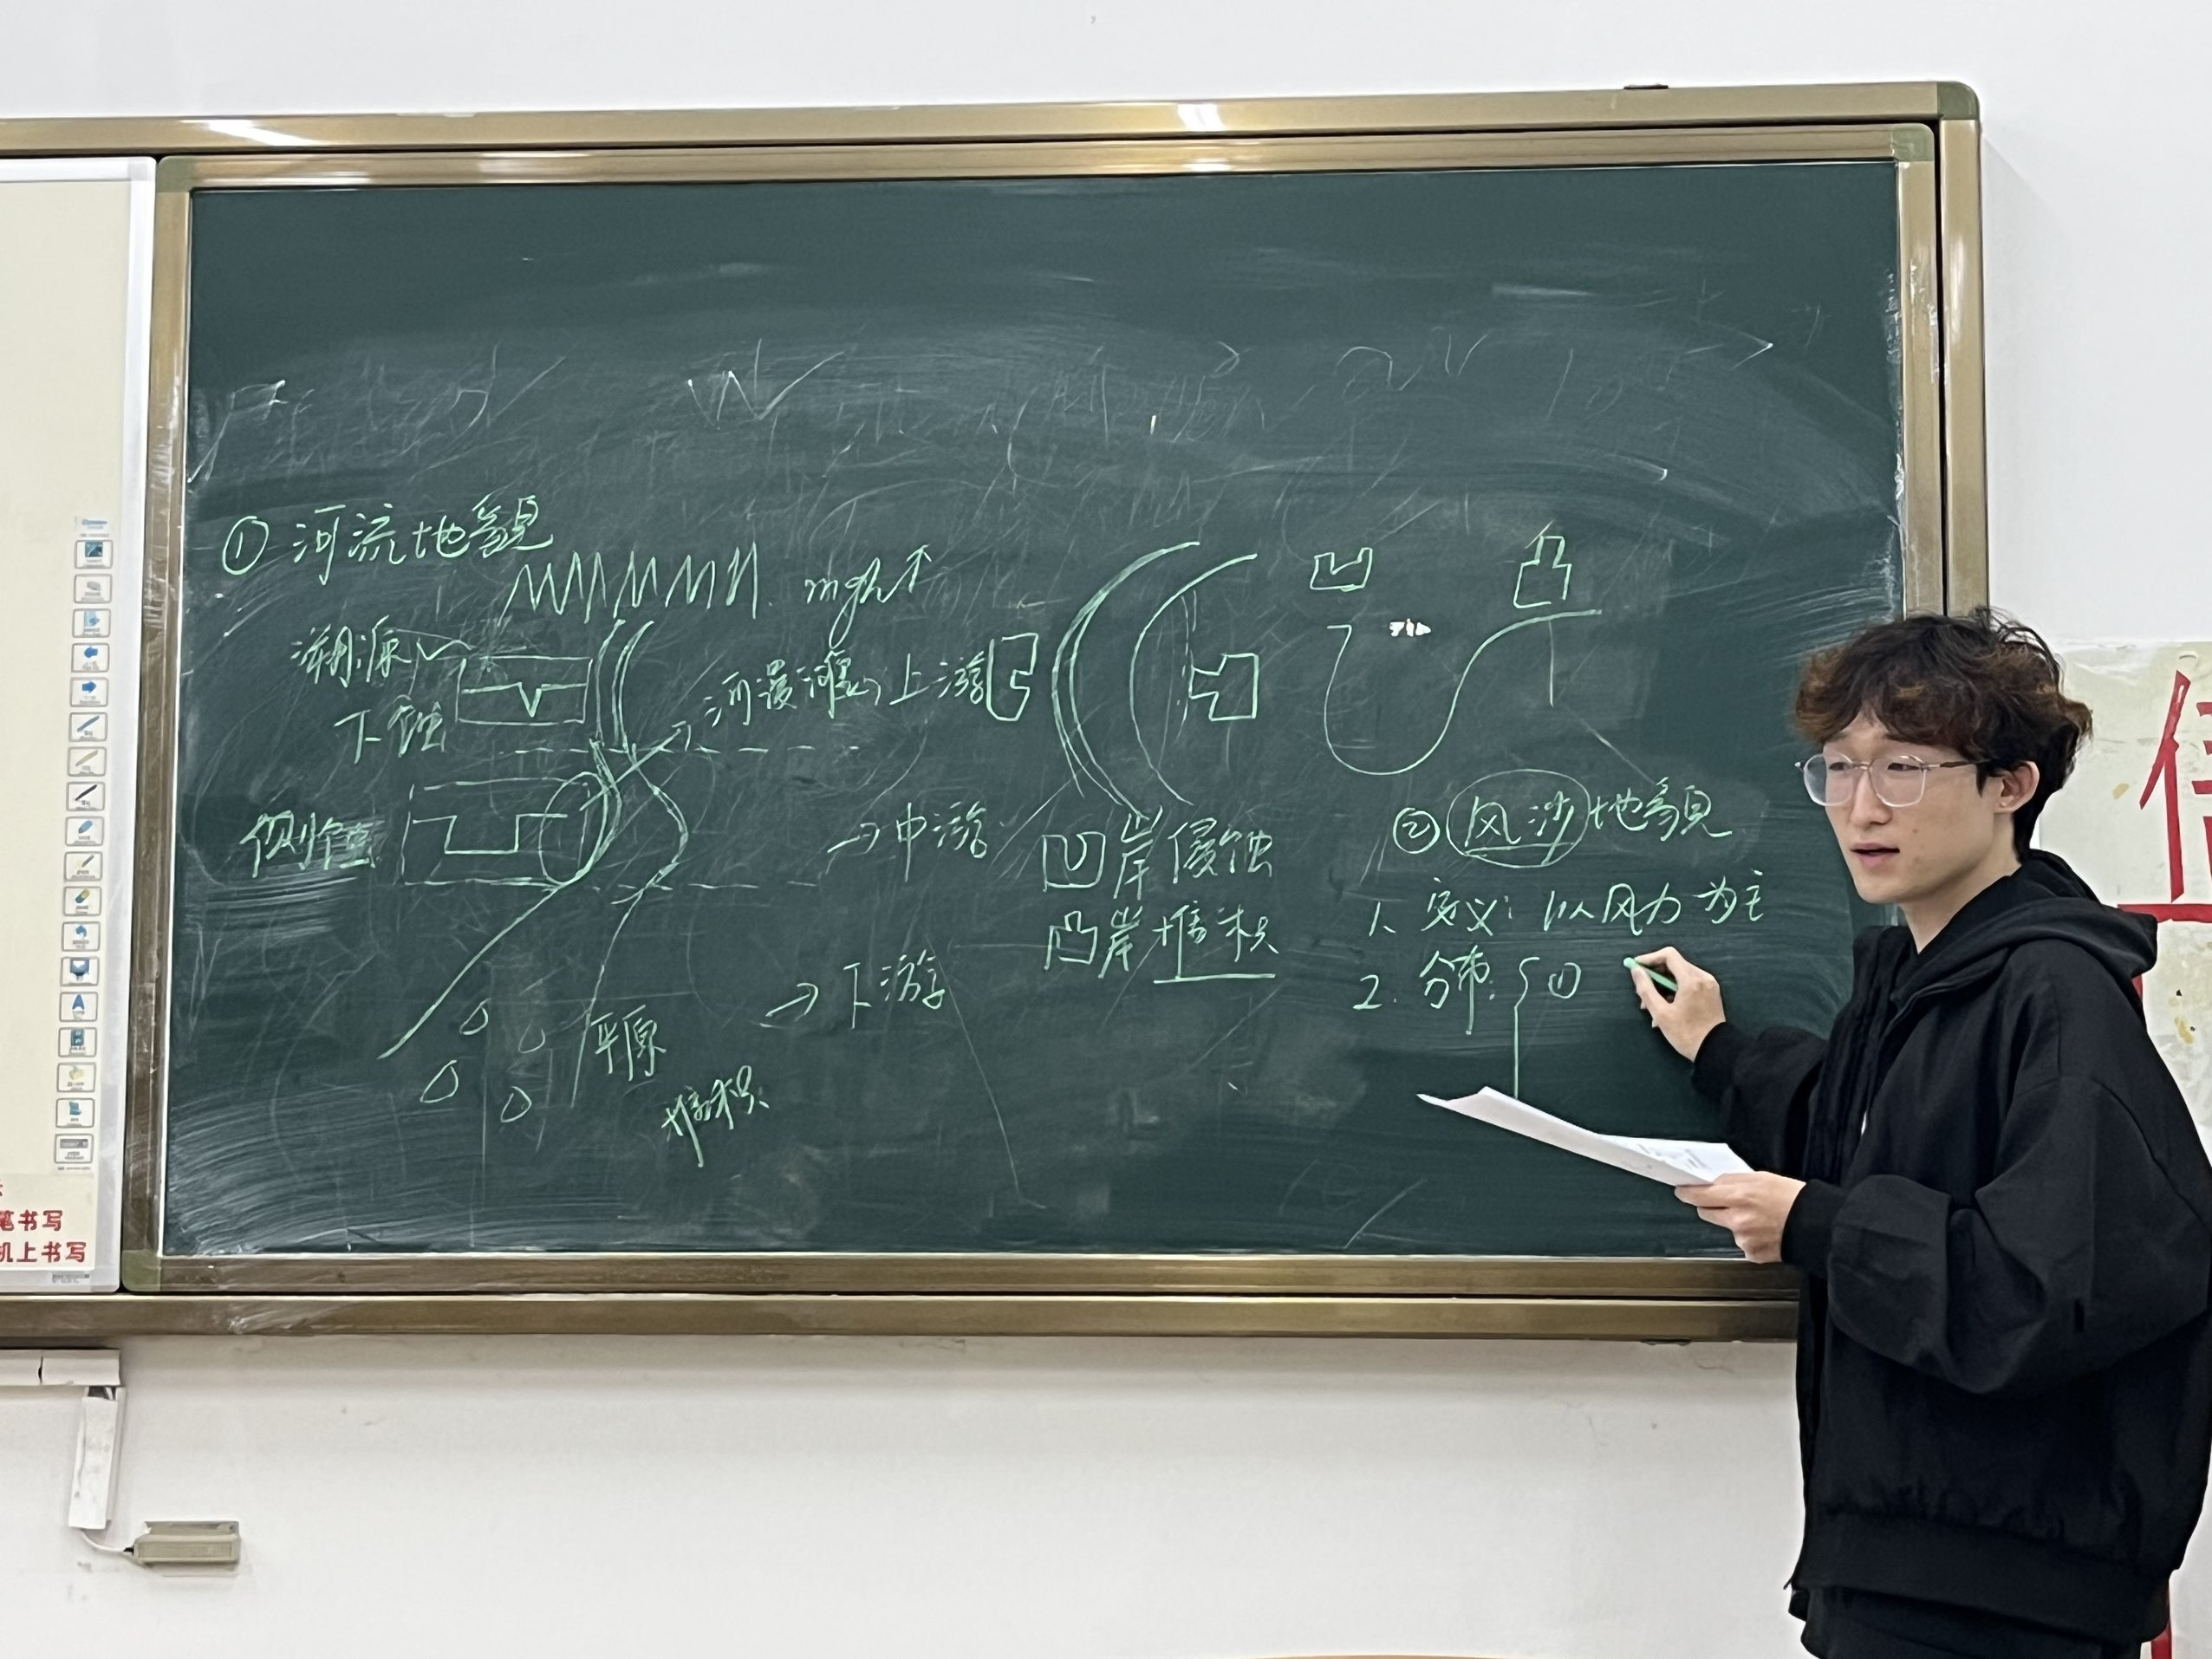 ① 河流地貌
mgh↑
溯源
下蚀
河漫滩
上游
侧蚀
→中游
→下游
平原
堆积
凹
凸
凹
凸
凹岸侵蚀
凸岸堆积
② 风沙地貌
1. 定义: 以风力为主
2. 分布: { ①
笔书写
机上书写